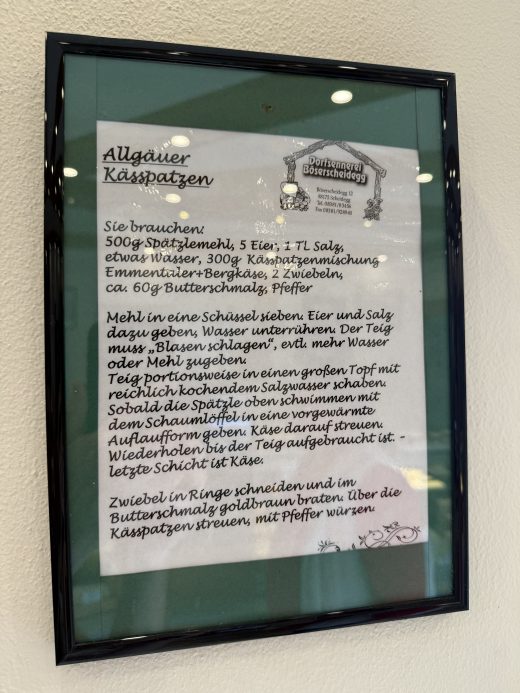 Allgäuer
Kässpatzen
Dorfsennerei
Böserscheidegg
Böserscheidegg 12
88175 Scheidegg
Sie brauchen:
500g Spätzlemehl, 5 Eier, 1 TL Salz,
etwas Wasser, 300g Kässpatzenmischung
Emmentaler+Bergkäse, 2 Zwiebeln,
ca. 60g Butterschmalz, Pfeffer
Mehl in eine Schüssel sieben. Eier und Salz
dazu geben, Wasser unterrühren. Der Teig
muss „Blasen schlagen", evtl. mehr Wasser
oder Mehl zugeben.
Teig portionsweise in einen großen Topf mit
reichlich kochendem Salzwasser schaben.
Sobald die Spätzle oben schwimmen mit
dem Schaumlöffel in eine vorgewärmte
Auflaufform geben. Käse darauf streuen.
Wiederholen bis der Teig aufgebraucht ist. –
letzte Schicht ist Käse.
Zwiebel in Ringe schneiden und im
Butterschmalz goldbraun braten. Über die
Kässpatzen streuen, mit Pfeffer würzen.